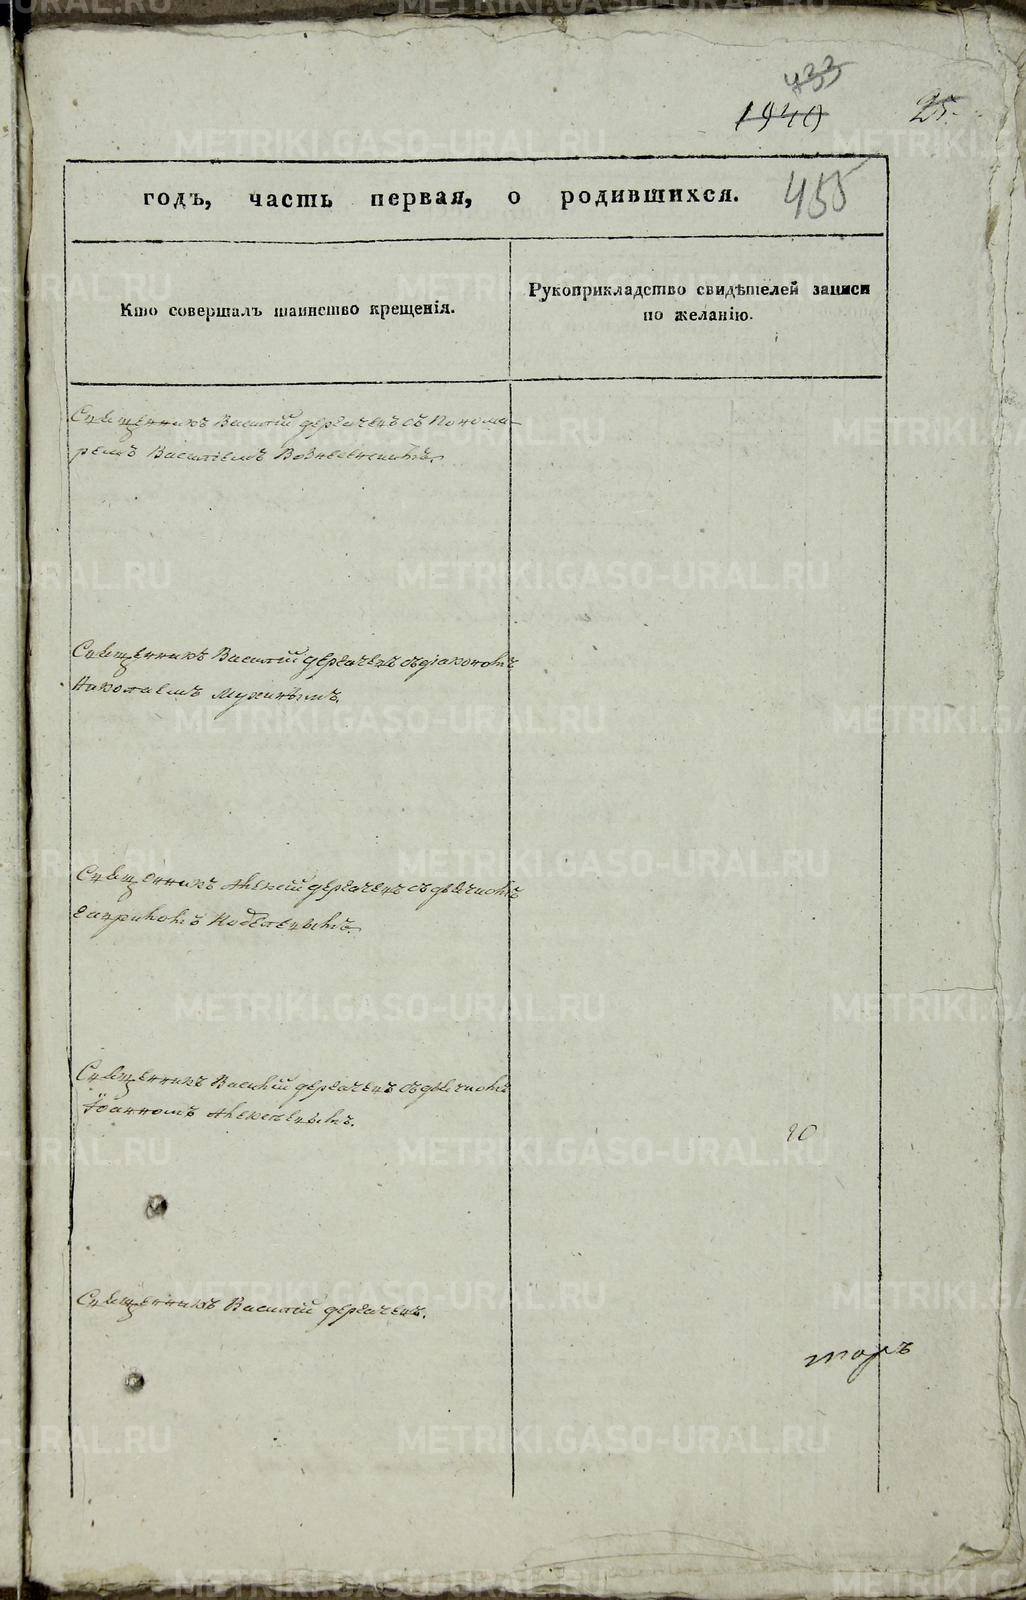 433
1940
25.
455
годъ, часть первая, о родившихся.
Кто совершалъ таинство крещенія.
Рукоприкладство свидѣтелей записи
по желанію.
Священникъ Василій Дергачевъ съ Понома-
ремъ Василіемъ Вознесенскимъ.
Священникъ Василій Дергачевъ съ діакономъ
Николаемъ Мухинымъ.
Священникъ Алексій Дергачевъ съ дьячкомъ
Гавриломъ Коделевымъ.
Священникъ Василій Дергачевъ съ дьячкомъ
Іоанномъ Алексѣевымъ.
Священникъ Василій Дергачевъ.
METRIKI.GASO-URAL.RU